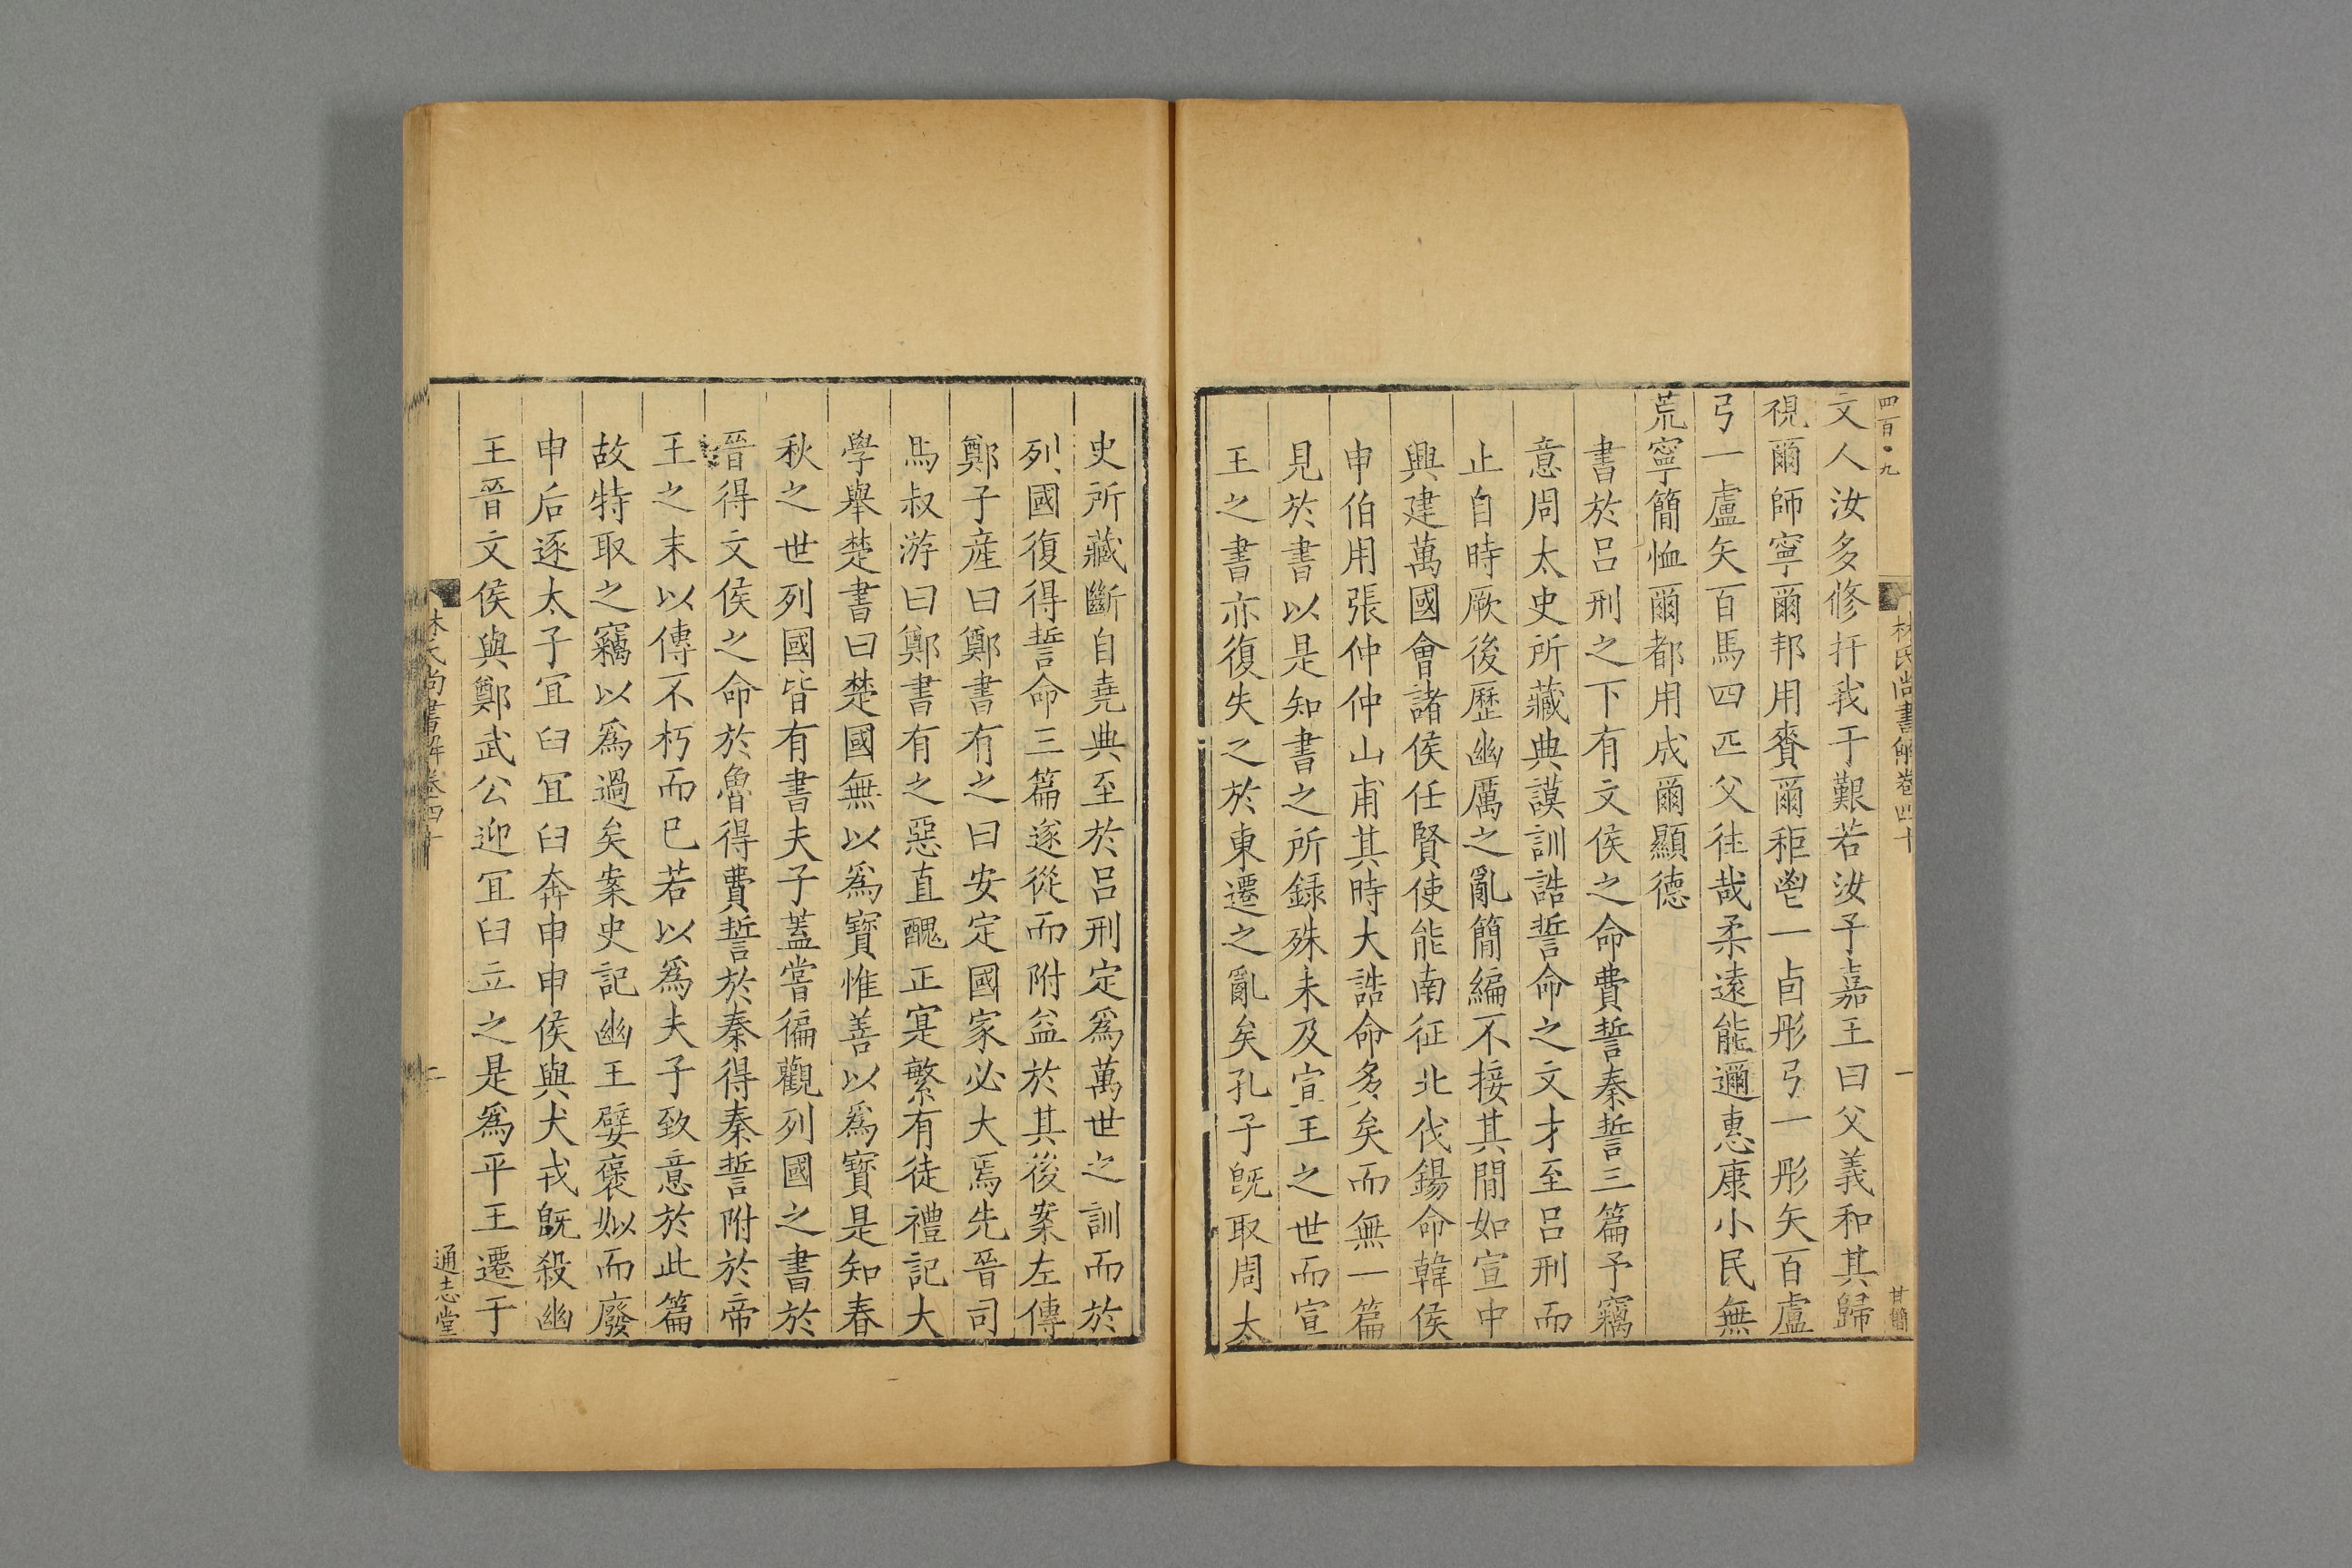 四百〇九
林氏尚書解卷四十
一
甘簡
文人汝多修扞我于艱若汝予嘉王曰父義和其歸
視爾師寧爾邦用賚爾秬鬯一卣彤弓一彤矢百盧
弓一盧矢百馬四匹父往哉柔遠能邇惠康小民無
荒寧簡恤爾都用成爾顯德
書於呂刑之下有文侯之命費誓秦誓三篇予竊
意周太史所藏典謨訓誥誓命之文才至呂刑而
止自時厥後歷幽厲之亂簡編不接其間如宣中
興建萬國會諸侯任賢使能南征北伐錫命韓侯
申伯用張仲仲山甫其時大誥命多矣而無一篇
見於書以是知書之所録殊未及宣王之世而宣
王之書亦復失之於東遷之亂矣孔子旣取周太
史所藏斷自堯典至於呂刑定爲萬世之訓而於
列國復得誓命三篇遂從而附益於其後案左傳
鄭子産曰鄭書有之曰安定國家必大焉先晉司
馬叔游曰鄭書有之惡直醜正寔繁有徒禮記大
學舉楚書曰楚國無以爲寶惟善以爲寶是知春
秋之世列國皆有書夫子蓋嘗徧觀列國之書於
晉得文侯之命於魯得費誓於秦得秦誓附於帝
王之末以傳不朽而已若以爲夫子致意於此篇
故特取之竊以爲過矣案史記幽王嬖褒姒而廢
申后逐太子宜臼宜臼奔申申侯與犬戎旣殺幽
王晉文侯與鄭武公迎宜臼立之是爲平王遷于
林氏尚書解卷四十
二
通志堂